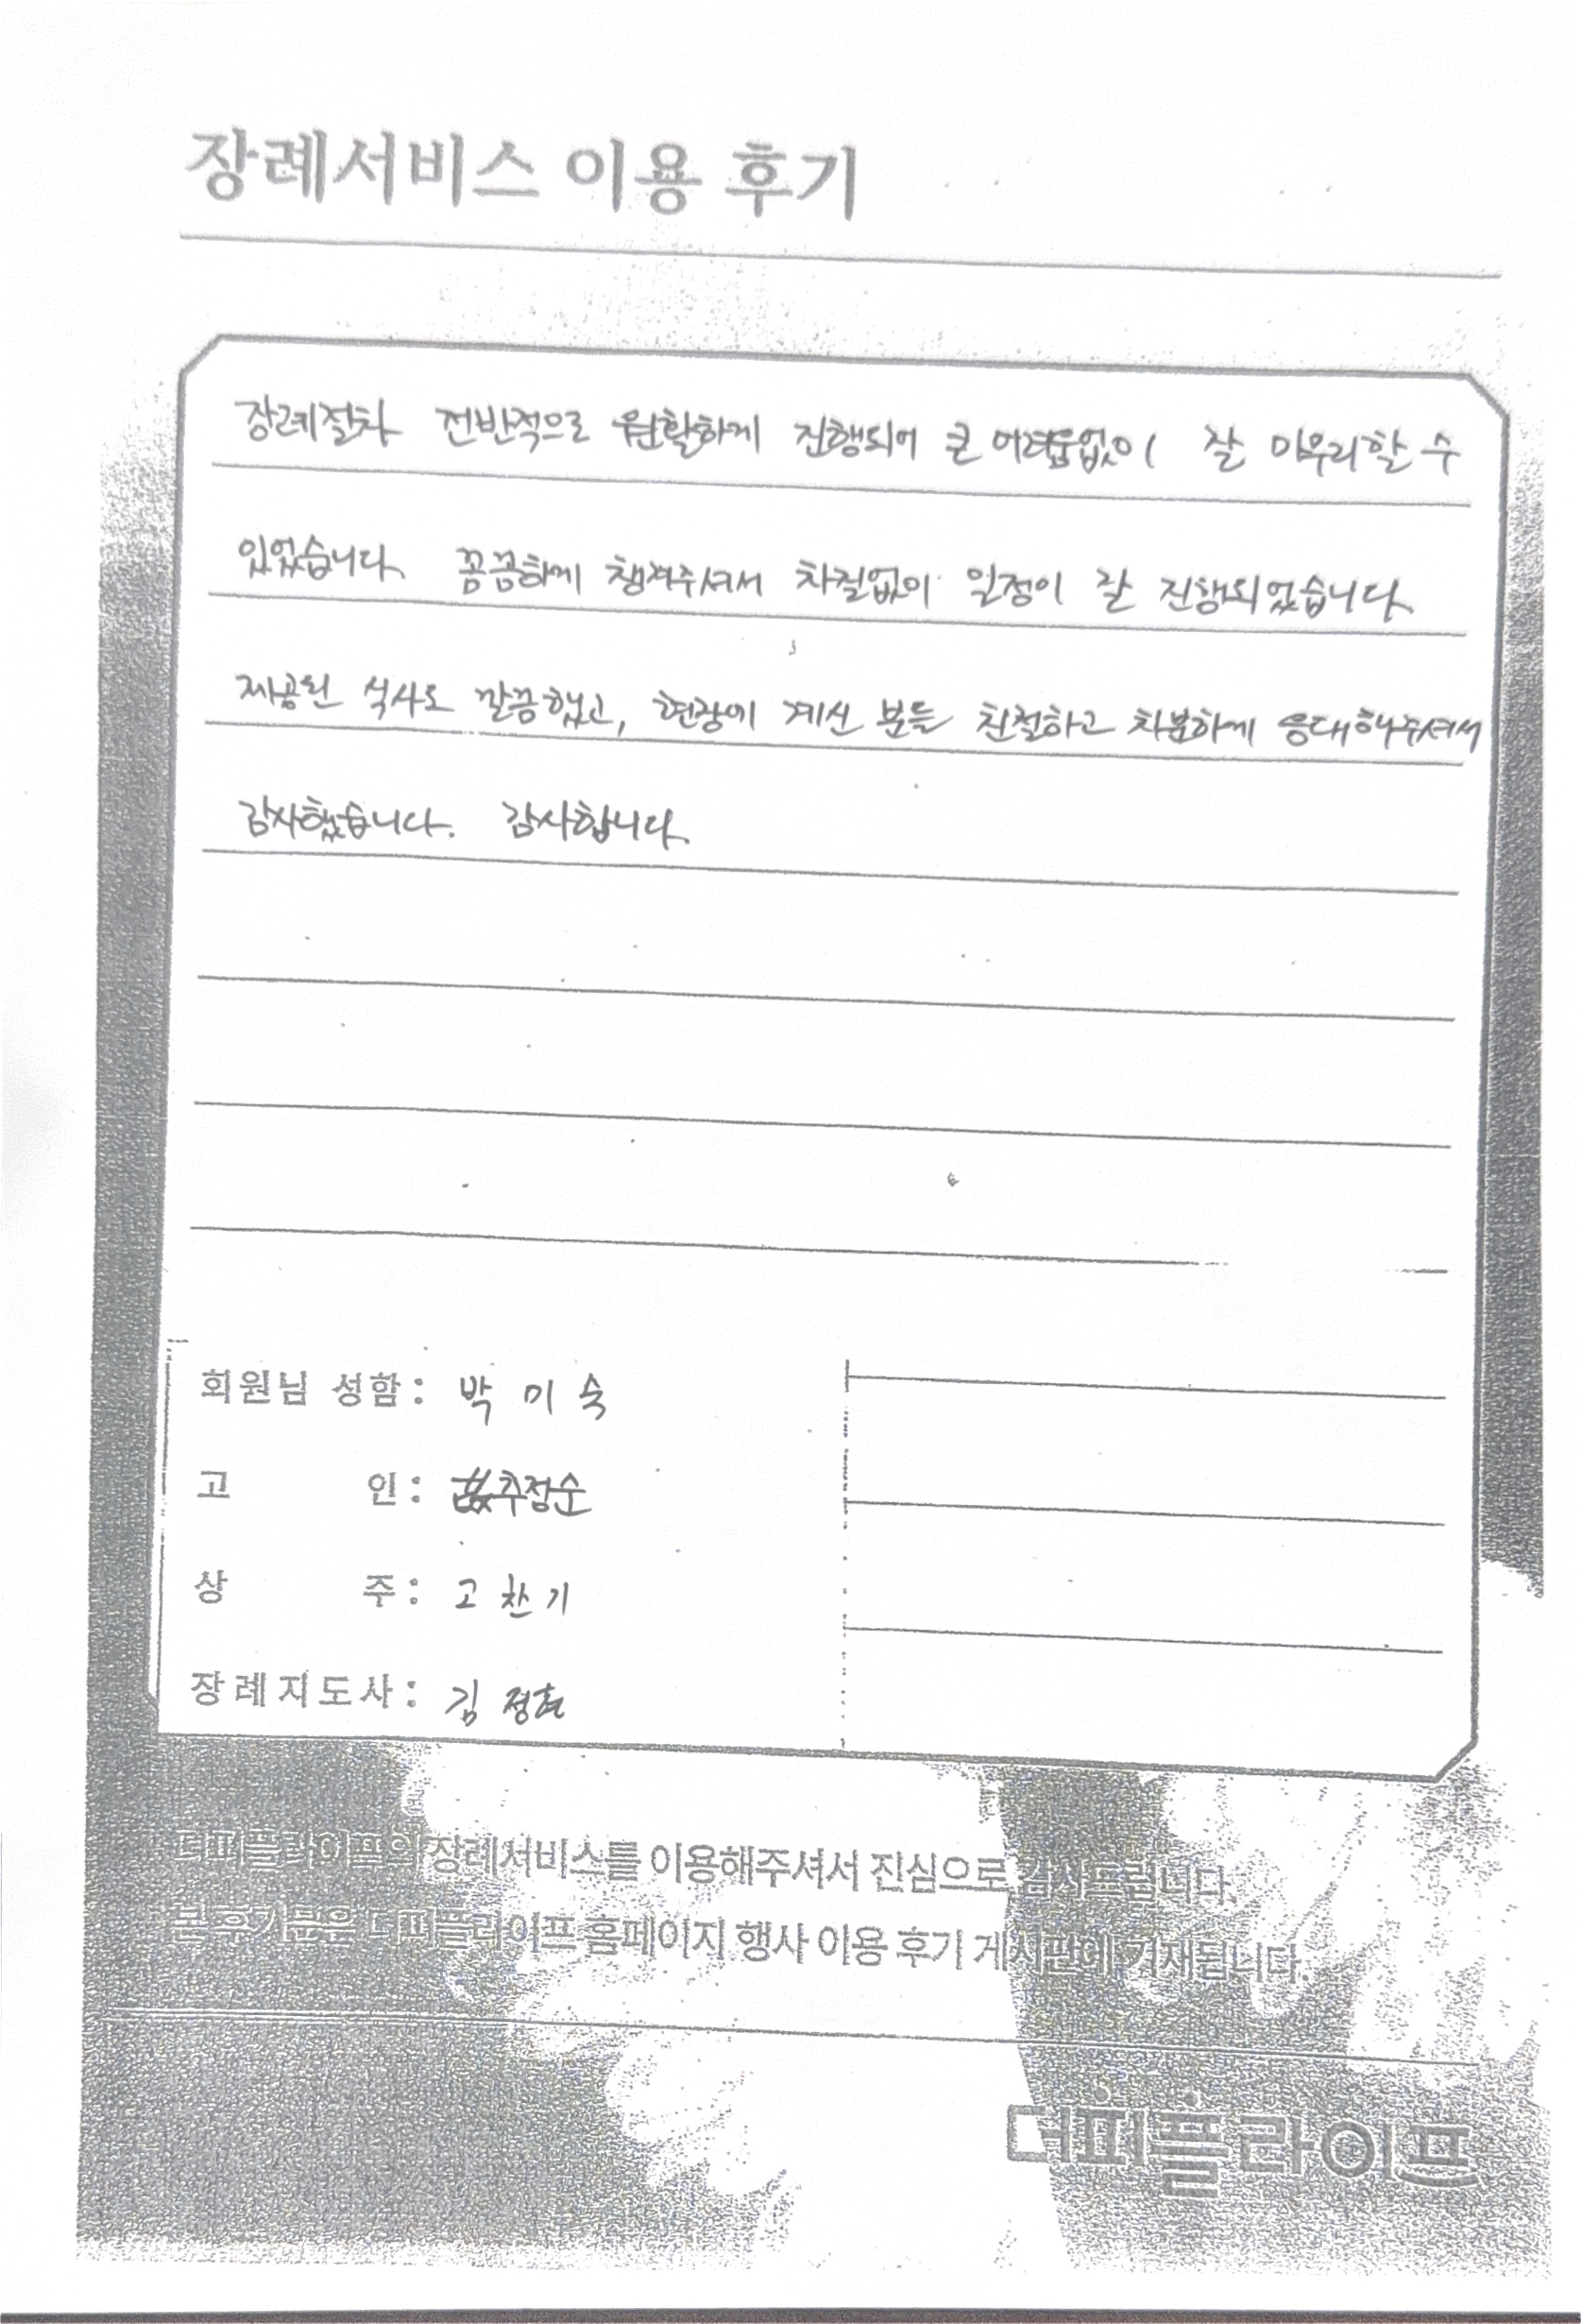 장례서비스 이용 후기
장례절차 전반적으로 원활하게 진행되어 큰 어려움없이 잘 마무리할 수
있었습니다. 꼼꼼하게 챙겨주셔서 차질없이 일정이 잘 진행되었습니다.
제공된 식사도 깔끔했고, 현장에 계신 분들 친절하고 차분하게 응대해주셔서
감사했습니다. 감사합니다.
회원님 성함: 박미숙
고 인: 故추정순
상 주: 고찬기
장례지도사: 김정현
더피플라이프의 장례서비스를 이용해주셔서 진심으로 감사드립니다.
본 후기문은 더피플라이프 홈페이지 행사 이용 후기 게시판에 기재됩니다.
더피플라이프